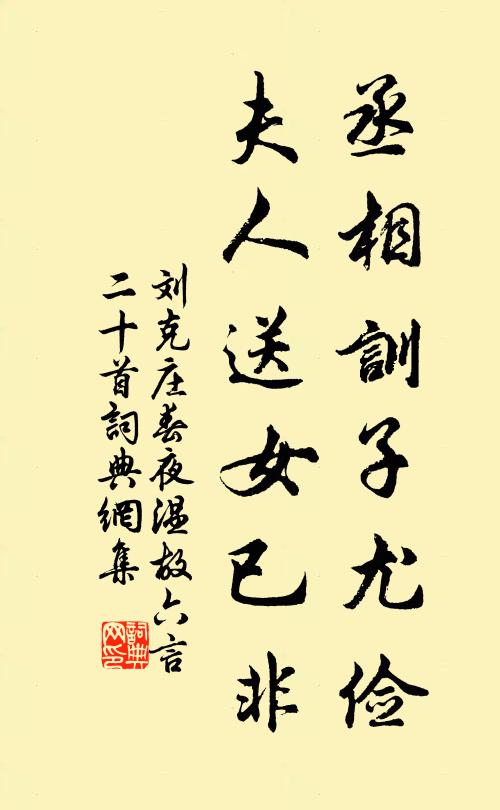 丞相訓子尤俭
夫人送女已非
刘克庄春夜温故六言
二十首詞典網集
詞典
网印